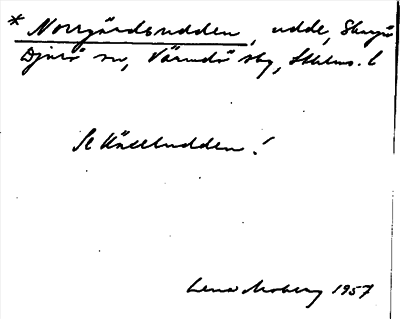 * Norrgårdsudden, udde,
Djurö sn, Värmdö sbg, Sthlms. l
Se Källudden!
Lena Moberg 1957